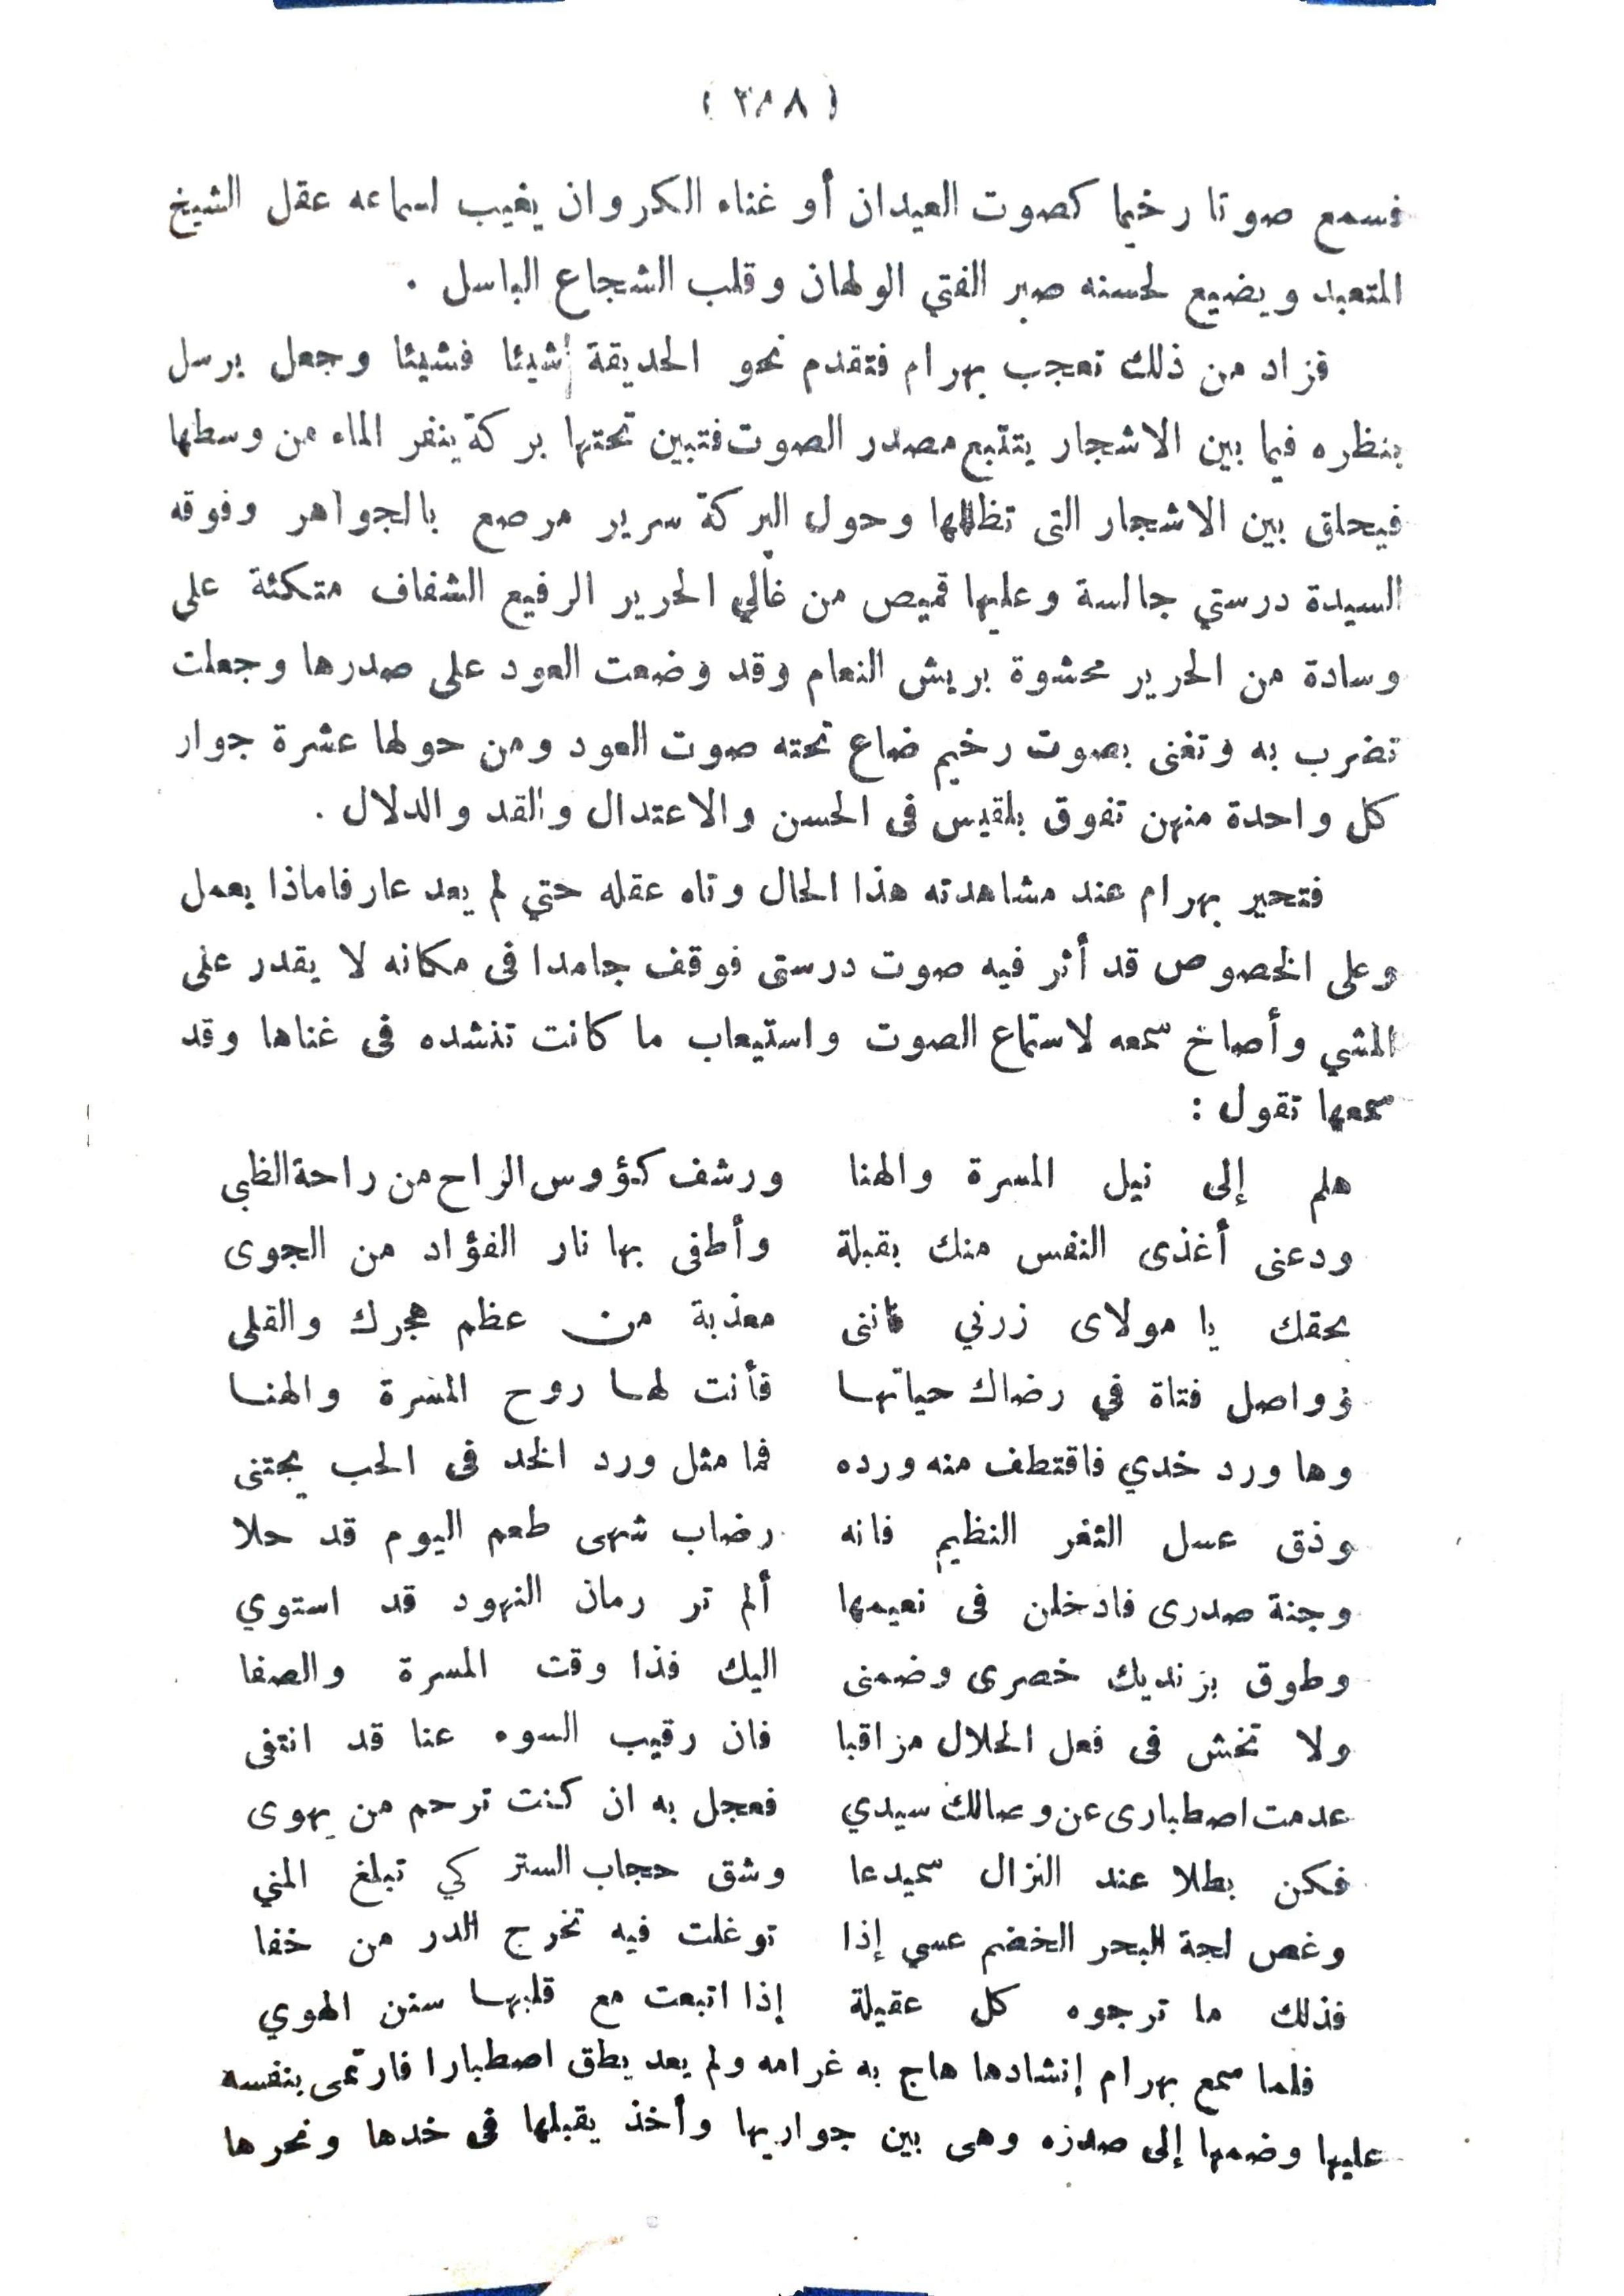 فسمع صوتا رخيما كصوت العيدان أو غناء الكروان يغيب لسماعه عقل الشيخ
المتعبد ويضيع لحسنه صبر الفتي الولهان وقلب الشجاع الباسل .
فزاد من ذلك تعجب بهرام فتقدم نحو الحديقة شيئا فشيئا وجعل يرسل
بنظره فيما بين الاشجار يتتبع مصدر الصوت فتبين تحتها بركة ينفر الماء من وسطها
فيحلق بين الاشجار التى تظللها وحول البركة سرير مرصع بالجواهر وفوقه
السيدة درستي جالسة وعليها قميص من غالي الحرير الرفيع الشفاف متكئة على
وسادة من الحرير محشوة بريش النعام وقد وضعت العود على صدرها وجعلت
تضرب به وتغنى بصوت رخيم ضاع تحته صوت العود ومن حولها عشرة جوار
كل واحدة منهن تفوق بلقيس فى الحسن والاعتدال والقد والدلال .
فتحير بهرام عند مشاهدته هذا الحال وتاه عقله حتي لم يعد عارفا ماذا يعمل
وعلى الخصوص قد أثر فيه صوت درستى فوقف جامدا فى مكانه لا يقدر على
المشي وأصاخ سمعه لاستماع الصوت واستيعاب ما كانت تنشده فى غناها وقد
سمعها تقول :
هلم إلى نيل المسرة والهنا ورشف كؤوس الراح من راحة الظبي
ودعنى أغذى النفس منك بقبلة وأطفى بها نار الفؤاد من الجوى
بحقك يا مولاى زرني فاننى معذبة من عظم هجرك والقلى
وواصل فتاة في رضاك حياتها فأنت لها روح المسرة والهنا
وها ورد خدي فاقتطف منه ورده فما مثل ورد الخد فى الحب يجتنى
وذق عسل الثغر النظيم فانه رضاب شهى طعم اليوم قد حلا
وجنة صدرى فادخلن فى نعيمها ألم تر رمان النهود قد استوي
وطوق بزنديك خصرى وضمنى اليك فذا وقت المسرة والصفا
ولا تخش فى فعل الحلال مراقبا فان رقيب السوء عنا قد انتفى
عدمت اصطبارى عن وصالك سيدي فعجل به ان كنت ترحم من يهوى
فكن بطلا عند النزال سميدعا وشق حجاب الستر كي تبلغ المني
وغص لجة البحر الخضم عسي إذا توغلت فيه تخرج الدر من خفا
فذلك ما ترجوه كل عقيلة إذا اتبعت مع قلبها سنن الهوي
فلما سمع بهرام إنشادها هاج به غرامه ولم يعد يطق اصطبارا فارتمى بنفسه
عليها وضمها إلى صدره وهى بين جواريها وأخذ يقبلها فى خدها ونحرها